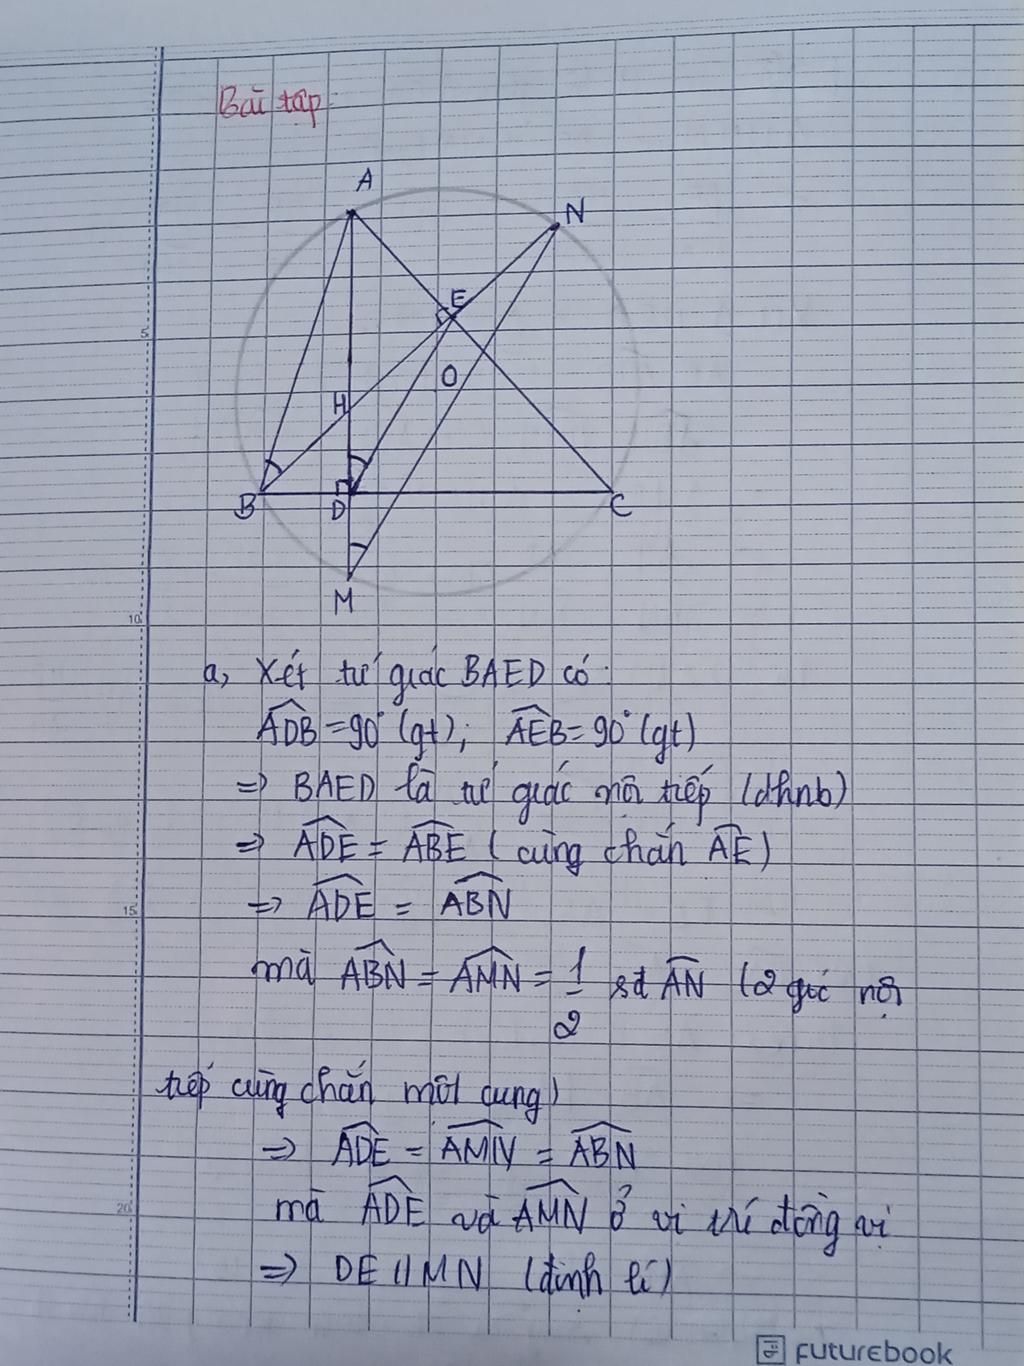 Bài tập
A
N
E
O
H
B
D
C
M
5
10
15
20
a, Xét tứ giác BAED có:
ADB = 90° (gt); AEB = 90° (gt)
=> BAED là tứ giác nội tiếp (dhnb)
=> ADE = ABE ( cùng chắn AE)
=> ADE = ABN
mà ABN = AMN = 1/2 sđ AN (2 góc nội
tiếp cùng chắn một cung)
=> ADE = AMN = ABN
mà ADE và AMN ở vị trí đồng vị
=> DE // MN (định lí)
futurebook